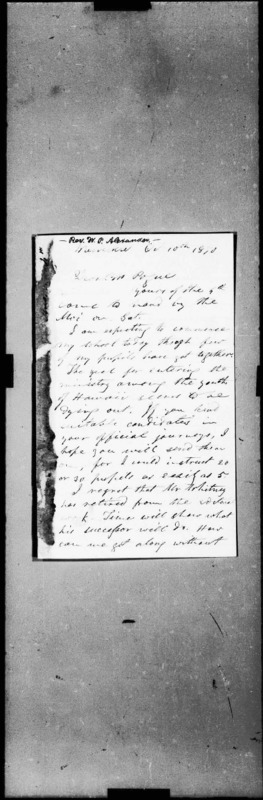 — Rev. W. P. Alexander —
Oc 10th 1870
Pogue
yours of the 9th
came to hand by the
on Sat.
I am expecting to commence
my school to day though few
of my pupils have got together.
The zeal for entering the
ministry among the youth
of Hawaii seems to be
dying out. If you find
suitable candidates in
your official journeys, I
hope you will send them
on, for I could instruct 20
or 30 pupils as easily as 5
I regret that Mr Whitney
has retired from the
Time will show what
his successor will do. How
can we get along without